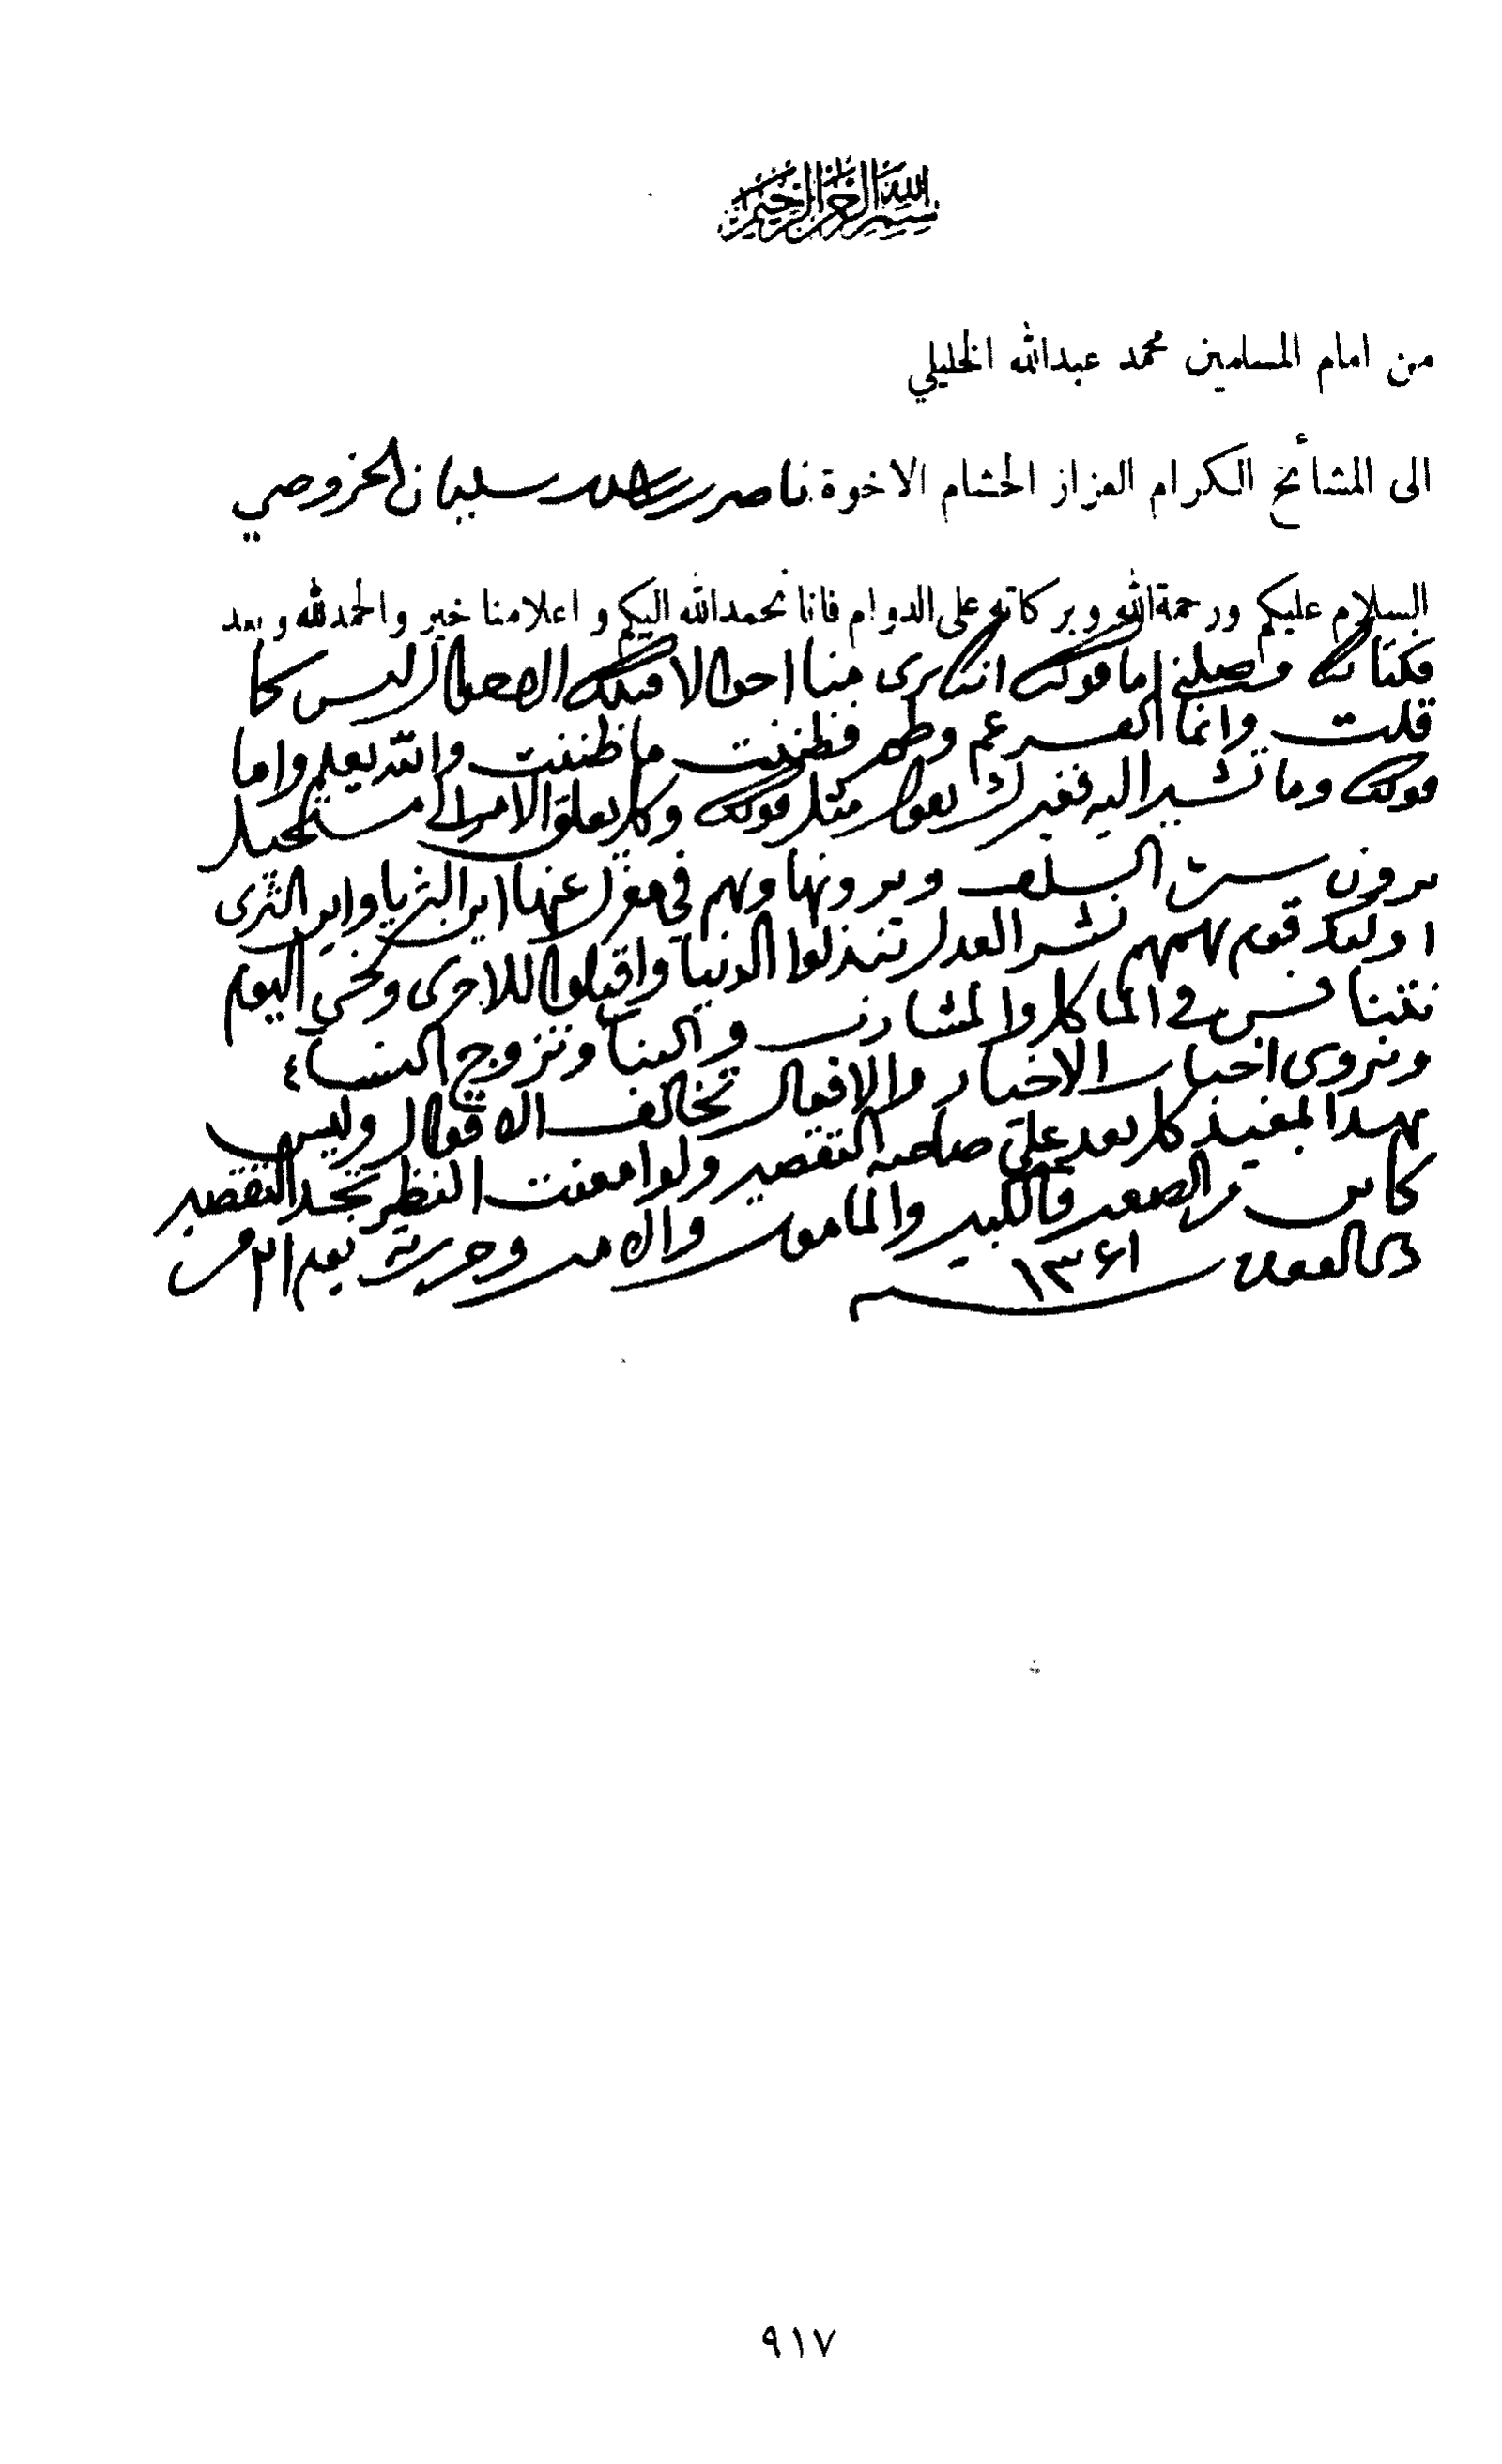 بسم الله الرحمن الرحيم
من امام المسلمين محمد عبدالله الخليلي
الى المشائخ الكرام العزاز الحشام الاخوة ناصر سليمان الخروصي
السلام عليكم ورحمة الله وبركاته على الدوام فانا نحمد الله اليكم واعلامنا خير والحمد لله وبعد
فكتابك وصلني اما قولك انك ترى منا احوالا ليس كما
قلت وانما العسر عم وطم فظننت ما ظننت والله يعلم واما
قولك وما تشير اليه فغيرك يقول مثل قولك وكل يعلق الامر
يرون السلف ويرونها وهم في معزل عنها اين الثريا واين الثرى
اولئك قوم همهم نشر العدل الدنيا واقبلوا للاخرى ونحن اليوم
نتنافس في المآكل والمشارب والبنا وتزوج النساء
ونروى اخبار الاخيار والافعال تخالف الاقوال وليس
بهذا المفيد كل يعد على صاحبه التقصير ولو امعنت النظر تجد التقصير
من الصغير والكبير والمامور والامر وحررته يوم ٢١ من
ذى القعدة ١٣٦١
٩١٧